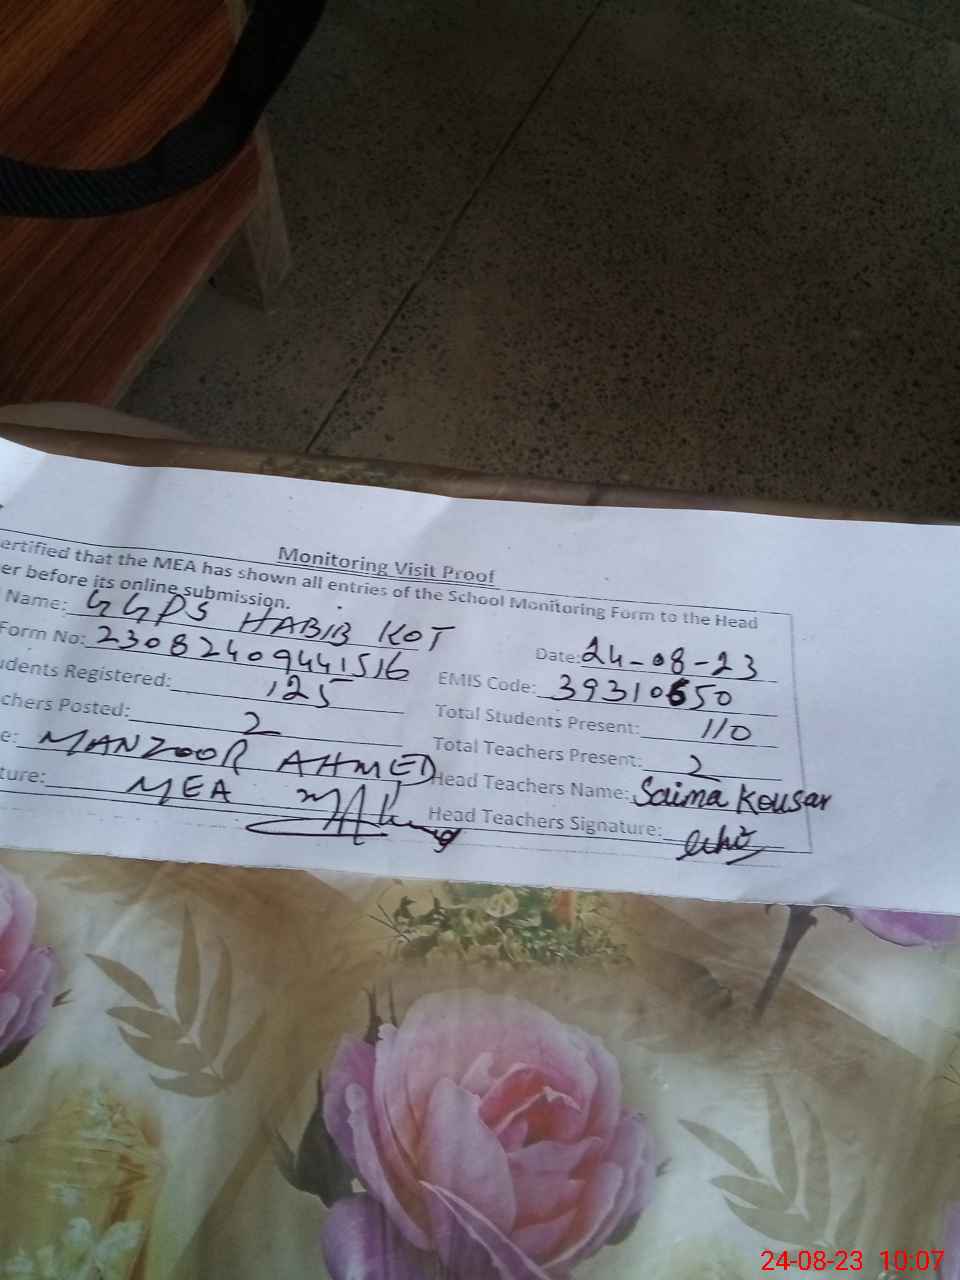 Monitoring Visit Proof
ertified that the MEA has shown all entries of the School Monitoring Form to the Head
er before its online submission.
Name: GGPS HABIB KOT
Date: 24-08-23
Form No: 23082409441516
EMIS Code: 39310650
udents Registered: 125
Total Students Present: 110
chers Posted: 2
Total Teachers Present: 2
e: MANZOOR AHMED
Head Teachers Name: Saima Kousar
ture: MEA
Head Teachers Signature:
24-08-23 10:07